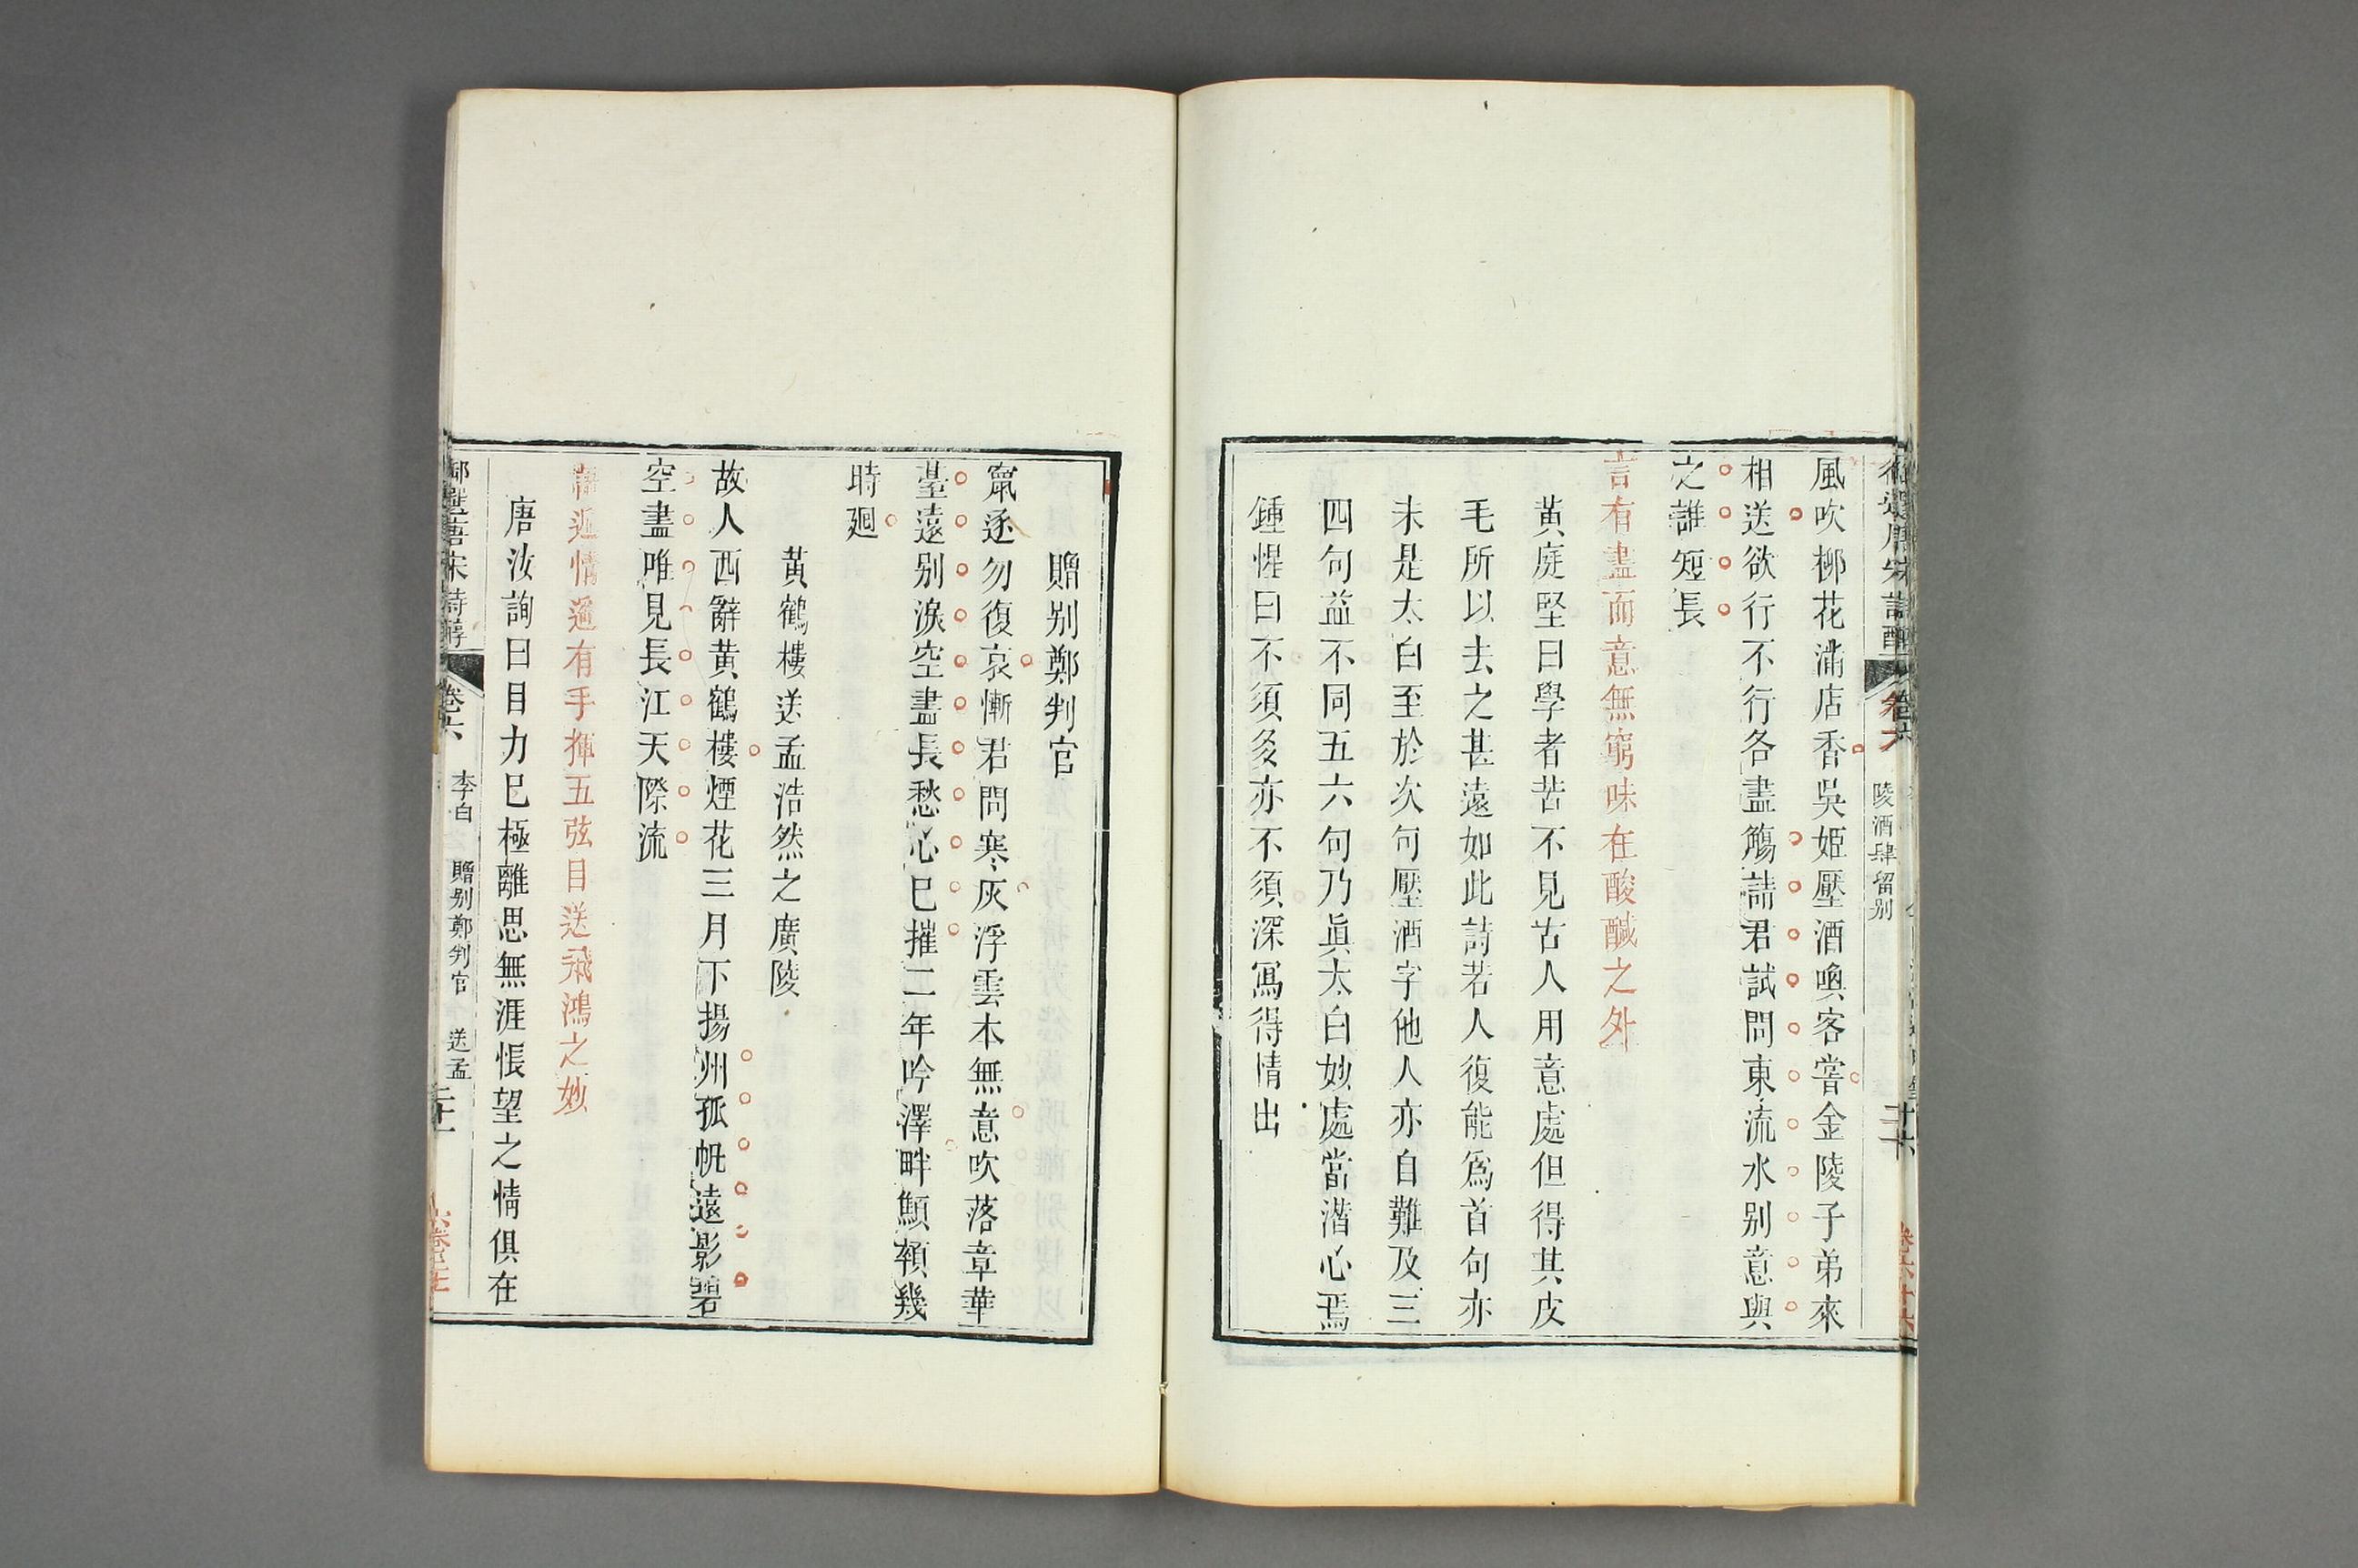 卷六
陵酒肆留别
二十六
卷六 二十六
風吹柳花滿店香吳姬壓酒喚客嘗金陵子弟來
相送欲行不行各盡觴請君試問東流水别意與
之誰短長
言有盡而意無窮味在酸醎之外
黃庭堅曰學者苦不見古人用意處但得其皮
毛所以去之甚遠如此詩若人復能爲首句亦
未是太白至於次句壓酒字他人亦自難及三
四句益不同五六句乃眞太白妙處當潛心焉
鍾惺曰不須多亦不須深寫得情出
贈别鄭判官
竄逐勿復哀慚君問寒灰浮雲本無意吹落章華
臺遠别淚空盡長愁心已摧二年吟澤畔顦顇幾
時廻
黃鶴樓送孟浩然之廣陵
故人西辭黃鶴樓煙花三月下揚州孤帆遠影碧
空盡唯見長江天際流
語近情遥有手揮五弦目送飛鴻之妙
唐汝詢曰目力已極離思無涯悵望之情俱在
御選唐宋詩醇
卷六
李白
贈别鄭判官
送孟